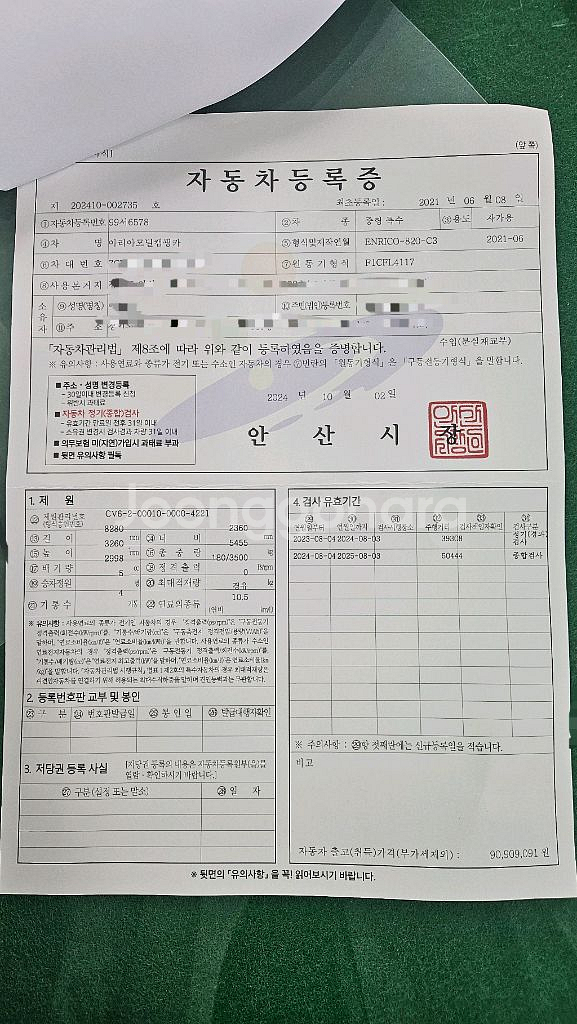 (앞 쪽)
자동차등록증
제 202410-002735 호 최초등록일 : 2021 년 06 월 08 일
①자동차등록번호 99서6578 ②차 종 중형 특수 ③용도 자가용
④차 명 아리아모빌캠핑카 ⑤형식및제작연월 ENRICO-820-C3 2021-06
⑥차대번호 ⑦원동기형식 F1CFL4117
⑧사용본거지
소유자 ⑨성명(명칭) ⑩주민(법인)등록번호
⑪주 소
「자동차관리법」 제8조에 따라 위와 같이 등록하였음을 증명합니다. 수입(분실재교부)
※ 유의사항 : 사용연료와 종류가 전기 또는 수소인 자동차의 경우 ⑦란의 「원동기형식」은 「구동전동기형식」을 말합니다.
■ 주소·성명 변경등록
- 30일이내 변경등록 신청
- 위반시 과태료
■ 자동차 정기(종합)검사
- 유효기간 만료일 전후 31일 이내
- 소유권 변경시 검사경과 차량 31일 이내
■ 의무보험 미(지연)가입시 과태료 부과
■ 뒷면 유의사항 필독
2024 년 10 월 02 일
안 산 시 장
1. 제 원
⑫ 제원관리번호 CV6-2-00010-0000-4221
(형식승인번호)
⑬ 길 이 8280 mm ⑭ 너 비 2360 mm
⑮ 높 이 3260 mm ⑯ 총 중 량 5455 kg
⑰ 배 기 량 2998 cc ⑱ 정격출력 180/3500 Ps/rpm
⑲ 승차정원 5 명 ⑳ 최대적재량 0 kg
㉑ 기 통 수 4 기통 ㉒ 연료의종류 경유
(연비 10.5 km/l)
2. 등록번호판 교부 및 봉인
㉓ 구 분 ㉔ 번호판발급일 ㉕ 봉 인 일 ㉖ 발급대행자확인
3. 저당권 등록 사실
[저당권 등록의 내용은 자동차등록원부(을)를
열람·확인하시기 바랍니다.]
㉗ 구분(설정 또는 말소) ㉘ 일 자
4. 검사 유효기간
연월일부터 연월일까지 검사시행장소 주행거리 검사책임자확인 검사구분
2023-08-04 2024-08-03 39308 정기(경과)검사
2024-08-04 2025-08-03 50444 종합검사
※ 주의사항 : ㉙항 첫째란에는 신규등록일을 적습니다.
비고
자동차 출고(취득)가격(부가세제외) : 90,909,091 원
※ 뒷면의 「유의사항」을 꼭! 읽어보시기 바랍니다.
joonggonara